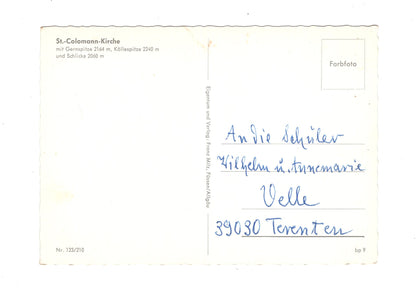 St.-Colomann-Kirche
mit Gernspitze 2164 m, Köllespitze 2240 m
und Schlicke 2060 m
Farbfoto
Eigentum und Verlag: Franz Milz, Füssen/Allgäu
An die Schüler
Wilhelm u. Annemarie
Velle
39030 Terenten
Nr. 123/210
bp 9